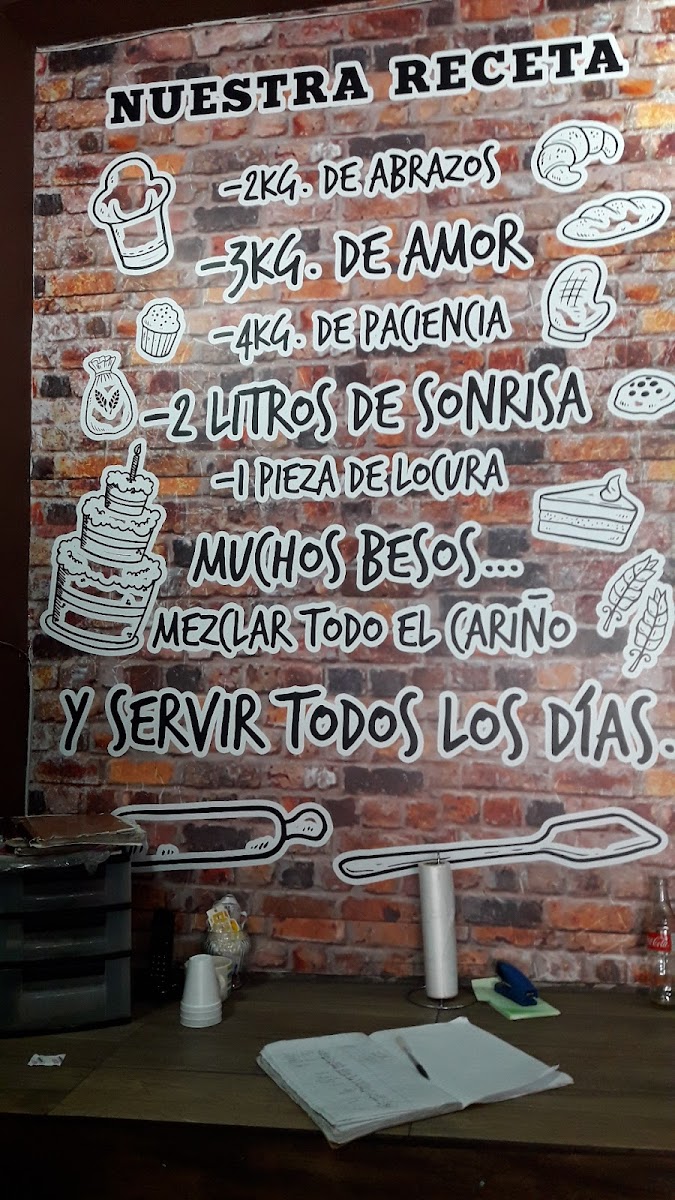 NUESTRA RECETA
-2KG. DE ABRAZOS
-3KG. DE AMOR
-4KG. DE PACIENCIA
-2 LITROS DE SONRISA
-1 PIEZA DE LOCURA
MUCHOS BESOS...
MEZCLAR TODO EL CARIÑO
Y SERVIR TODOS LOS DÍAS.